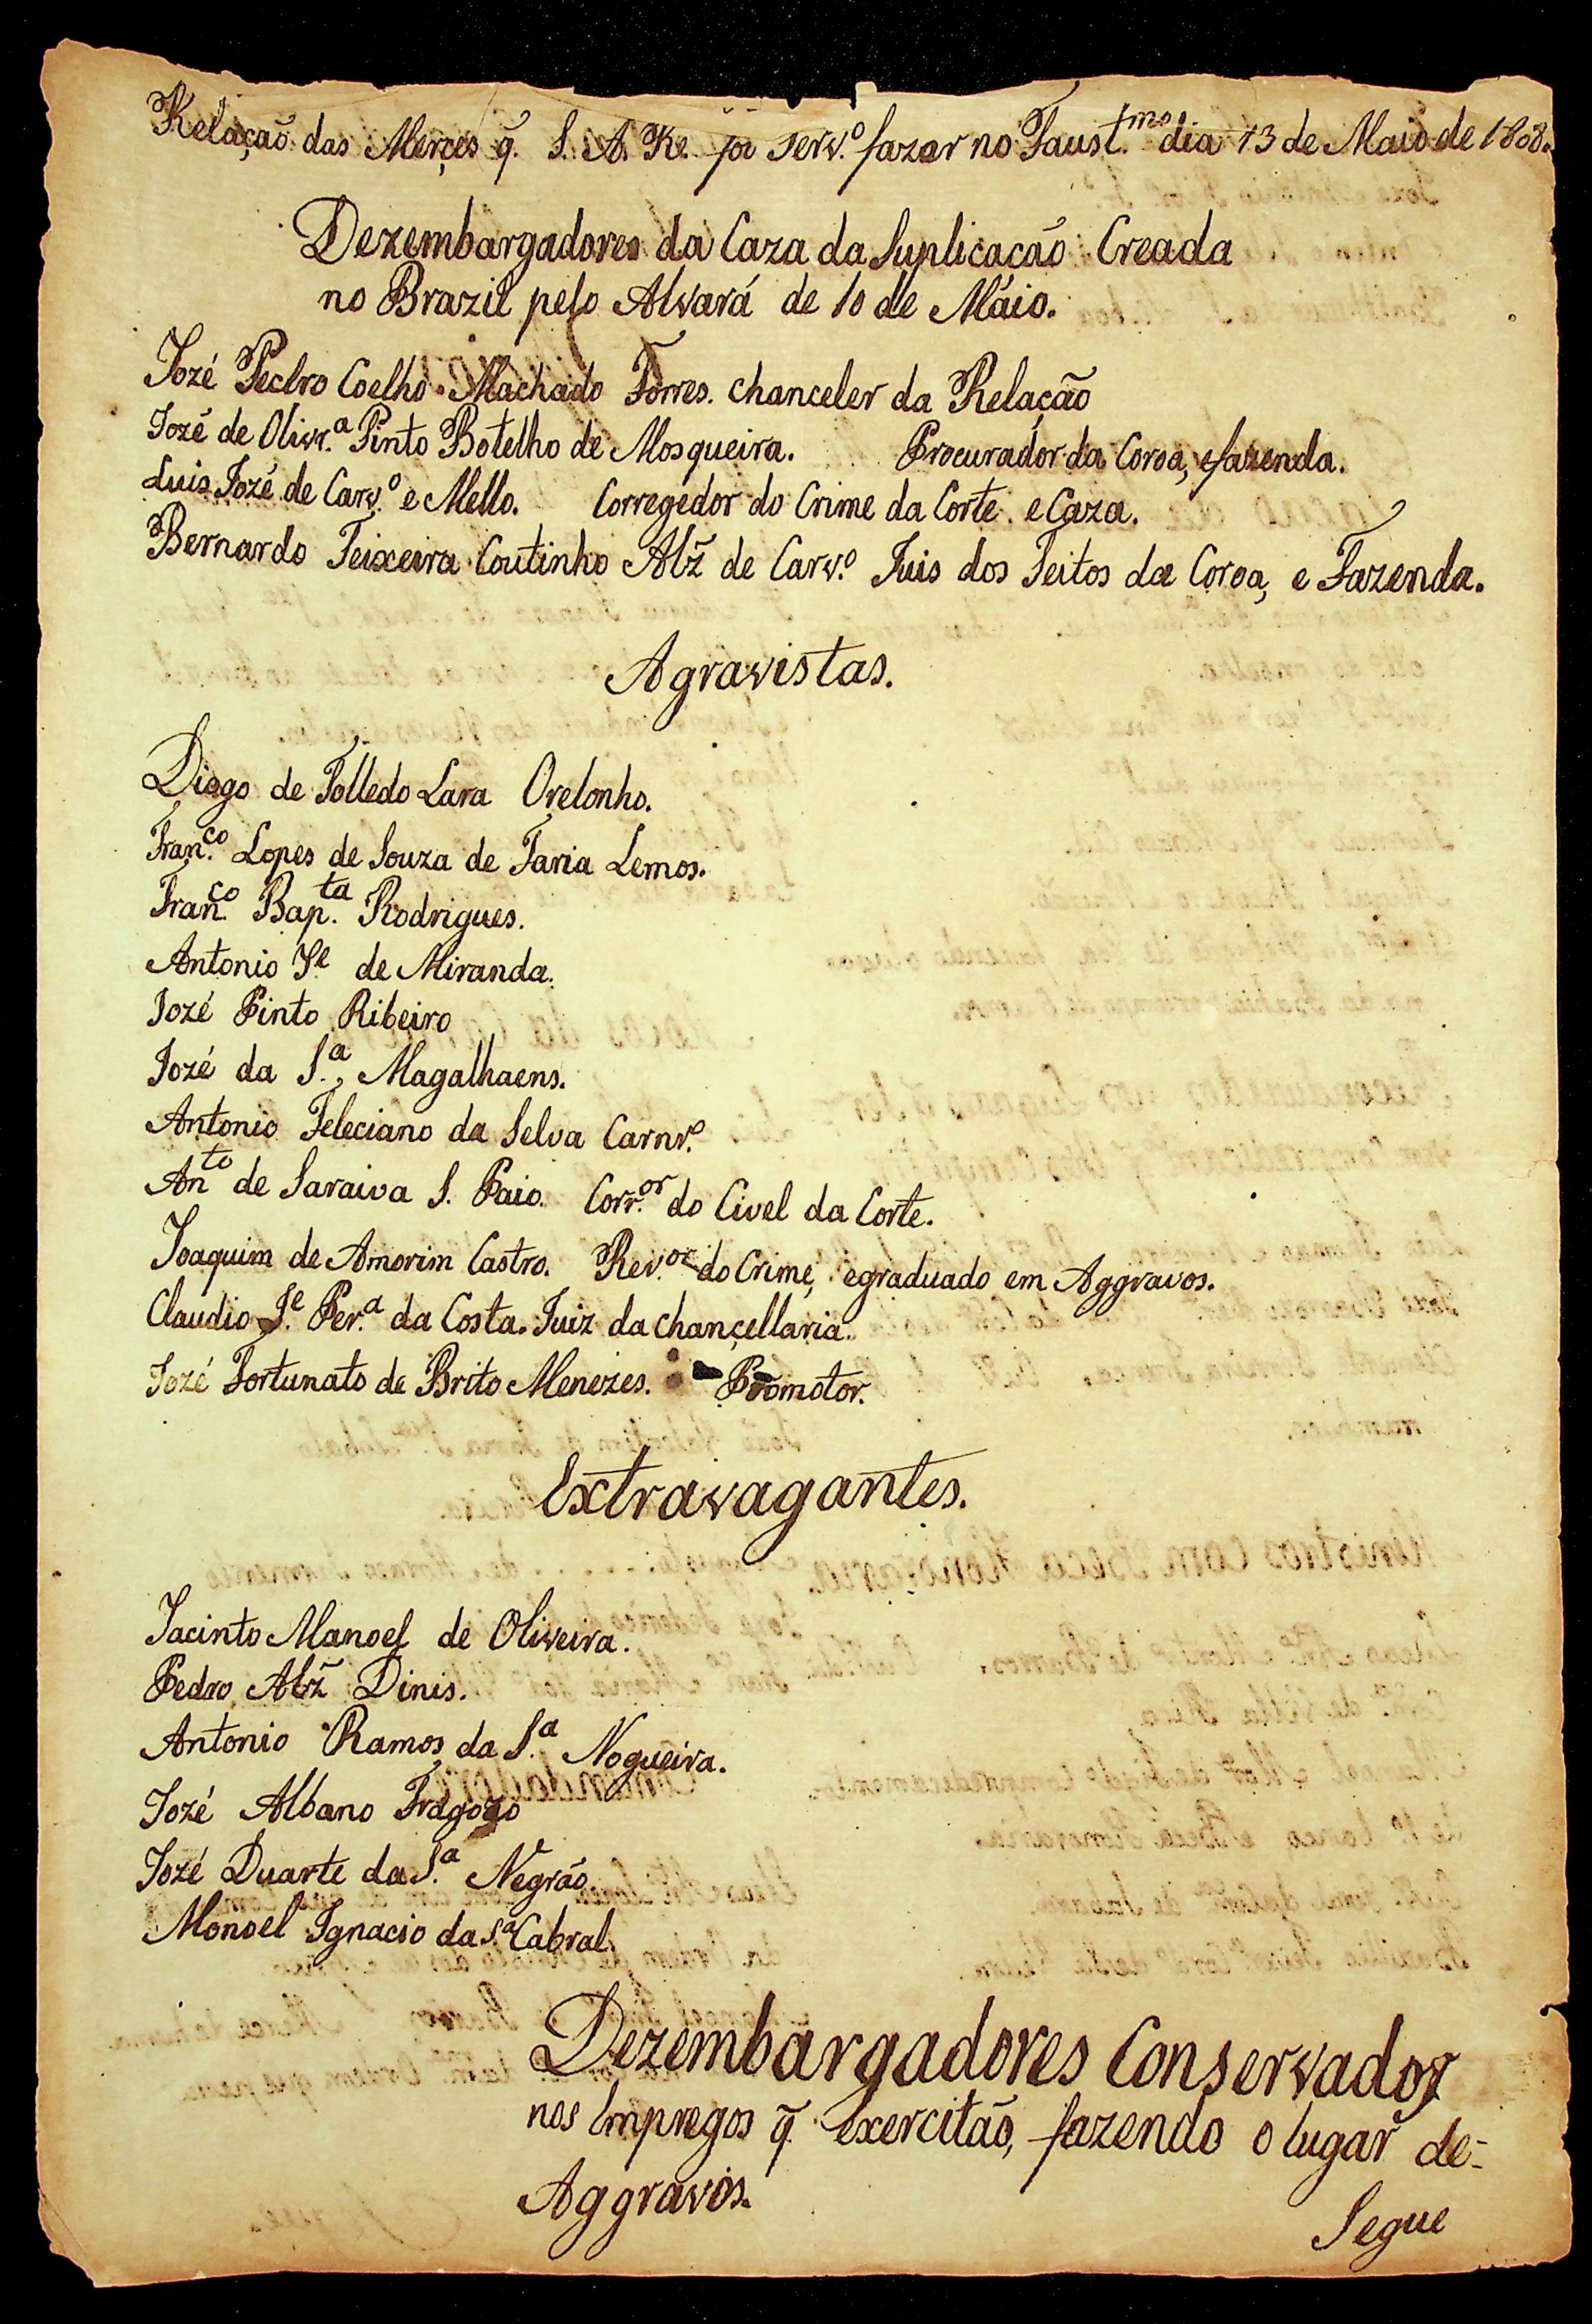 Relação das Merçes q̃. S. A. R. foi serv.º fazar no Faust.mo dia 13 de Maio de 1808.
Dezembargadores da Caza da Suplicação Creada
no Brazil pelo Alvará de 10 de Máio.
Jozé Pedro Coelho Machado Torres. Chanceler da Relação
Jozé de Olivr.ª Pinto Botelho de Mosqueira. Procurador da Coroa, efazenda.
Luis Jozé de Carv.º e Mello. Corregedor do Crime da Corte e Caza.
Bernardo Teixeira Coutinho Alz̃ de Carv.º Juis dos Feitos da Coroa, e Fazenda.
Agravistas.
Diogo de Tolledo Lara Orelonho.
Fran.co Lopes de Souza de Faria Lemos.
Fran.co Bap.ta Rodrigues.
Antonio Je de Miranda.
Jozé Pinto Ribeiro
Jozé da S.ª, Magalhaens.
Antonio Feleciano da Selva Carnr.º
Anto de Saraiva S. Paio. Corr.or do Civel da Corte.
Joaquim de Amorim Castro. Rev.or do Crime, egraduado em Aggravos.
Claudio J.e Per.ª da Costa. Juiz da chançellaria.
Jozé Fortunato de Brito Menezes. Promotor.
Extravagantes.
Jacinto Manoel de Oliveira.
Pedro Alz̃ Dinis.
Antonio Ramos da S.ª Nogueira.
Jozé Albano Fragozo
Jozé Duarte da S.ª Negrão
Monoel Ignacio da S.ª Cabral.
Dezembargadores Conservador
nos Empregos q̃. Exercitão, fazendo o lugar de-
Aggravos.
Segue